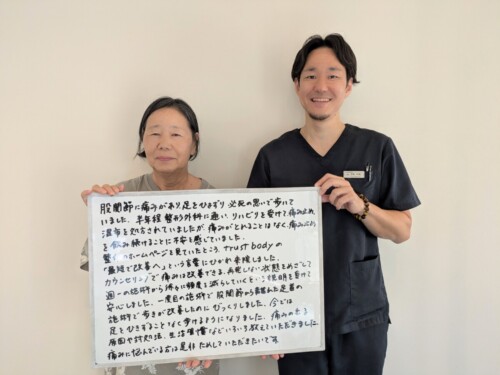 股関節に痛みがあり、足をひきずり必死の思いで歩いて
いました。半年程整形外科に通い、リハビリを受けて痛み止め、
湿布を処方されていましたが、痛みがとれることはなく痛み止め
を飲み続けることに不安を感じていました。
整体のホームページを見ていたところ、trust bodyの
"最短で改善へ"という言葉にひかれ来院しました。
カウンセリングで痛みは改善できる、再発しない状態をめざして
週一の施術から徐々に頻度を減らしていくという説明を受けて
安心しました。一度目の施術で股関節から 足首の
施術で歩きが改善したのにびっくりしました。今では
足をひきずることなく歩けるようになりました。痛みの出る
原因や対処法、生活習慣などいろいろ教えていただきました。
痛みに悩んでいる方は是非ためしていただきたいです。